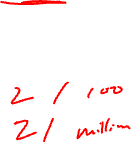 2 / 100
2 / million